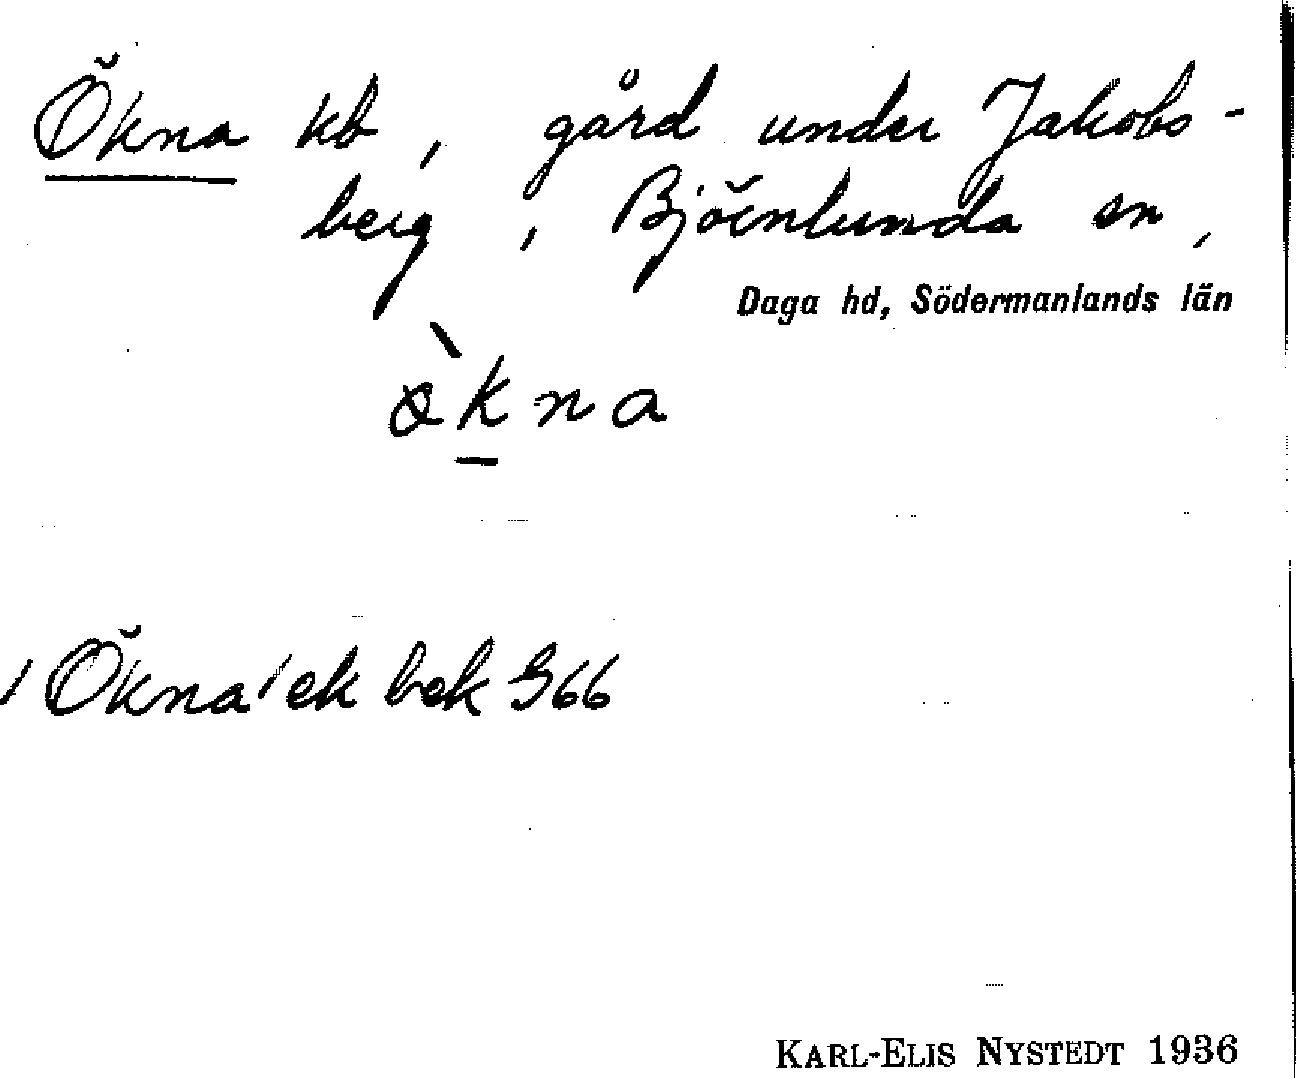 Ökna kb, gård under Jakobs-
berg, Björnlunda sn,
Daga hd, Södermanlands län
ö̀k̲na
/Ökna/ ek bok G66
KARL-ELIS NYSTEDT 1936